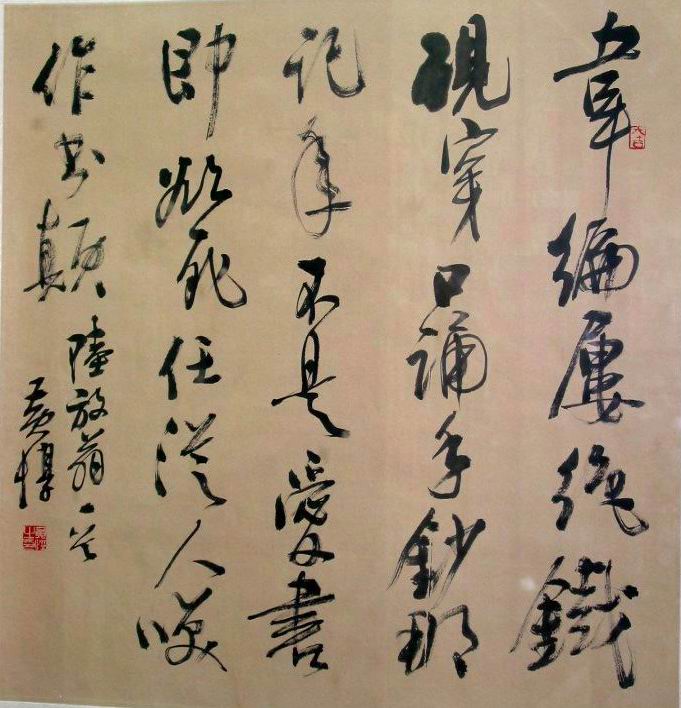 韋編屢絶鐵
硯穿口誦手鈔那
記年不是愛書
即欲死任從人喚
作書顛
陸放翁一首
黃惇